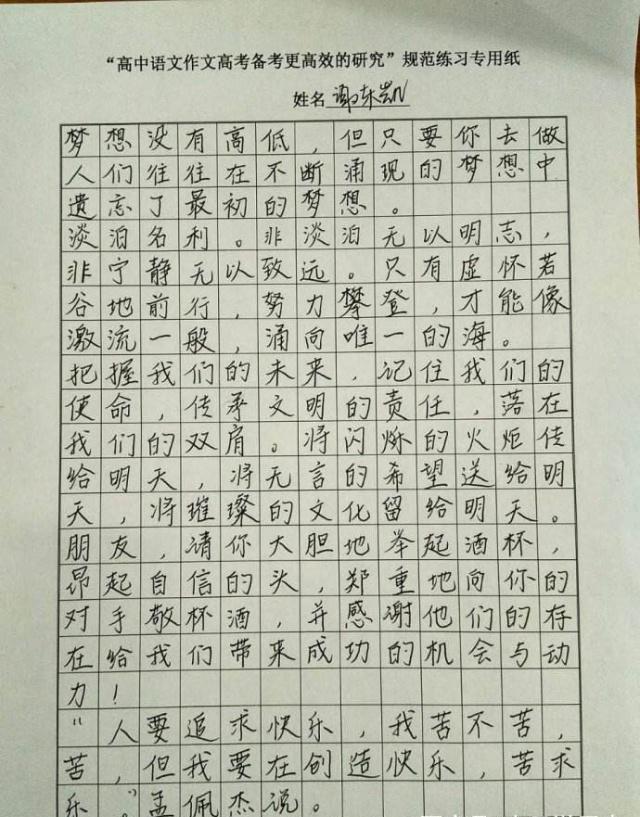 “高中语文作文高考备考更高效的研究”规范练习专用纸
姓名
梦想没有高低，但只要你去做
人们往往在不断涌现的梦想中
遗忘了最初的梦想。
淡泊名利。非淡泊无以明志，
非宁静无以致远。只有虚怀若
谷地前行，努力攀登，才能像
激流一般，涌向唯一的海。
把握我们的未来，记住我们的
使命，传承文明的责任，落在
我们的双肩。将闪烁的火炬传
给明天，将无言的希望送给明
天，将璀璨的文化留给明天。
朋友，请你大胆地举起酒杯，
昂起自信的头，郑重地向你的
对手敬杯酒，并感谢他们的存
在给我们带来成功的机会与动
力！
“人要追求快乐，我苦不苦，
苦，但我要在创造快乐，苦求
乐。”孟佩杰说。